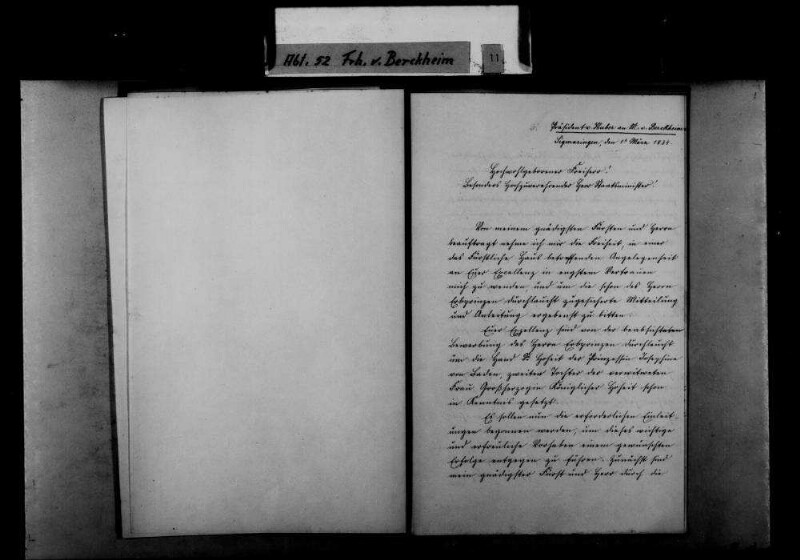 Abt. 52 Frh. v. Berckheim
11
Präsident v. Huber an M. v. Berckheim
Sigmaringen, den 1t März 1834.
Hochwohlgeborener Freiherr!
Besonders hochzuverehrender Herr Staatsminister!
Von meinem gnädigsten Fürsten und Herrn
beauftragt nehme ich mir die Freiheit, in einer
das Fürstliche Haus betreffenden Angelegenheit
an Euer Excellenz in engstem Vertrauen
mich zu wenden und um die schon des Herrn
Erbprinzen Durchlaucht zugesicherte Mitteilung
und Anleitung ergebenst zu bitten.
Euer Exzellenz sind von der beabsichtigten
Bewerbung des Herrn Erbprinzen Durchlaucht
um die Hand Ihr. Hoheit der Prinzessin Josephine
von Baden, zweiter Tochter der verwitweten
Frau Großherzogin Königlicher Hoheit schon
in Kenntnis gesetzt.
Es sollen nun die erforderlichen Einleit-
ungen begonnen werden, um dieses wichtige
und erfreuliche Vorhaben einem gewünschten
Erfolge entgegen zu führen. Zunächst sind
mein gnädigster Fürst und Herr durch die